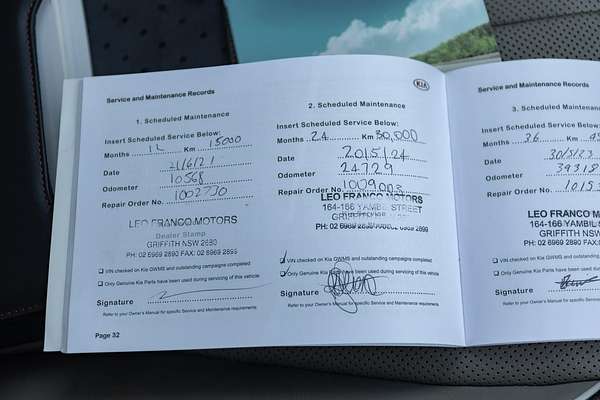 KIA
Service and Maintenance Records
1. Scheduled Maintenance
Insert Scheduled Service Below:
Months 12 Km 15000
Date 21/6/21
Odometer 10568
Repair Order No.
LEO FRANCO MOTORS
Dealer Stamp
GRIFFITH NSW 2680
PH: 02 6969 2890 FAX: 02 6969 2899
VIN checked on Kia GWMS and outstanding campaigns completed
Only Genuine Kia Parts have been used during servicing of this vehicle
Signature
Refer to your Owner's Manual for specific Service and Maintenance requirements
Page 32
2. Scheduled Maintenance
Insert Scheduled Service Below:
Months 24 Km 30,000
Date
Odometer 24729
Repair Order No. 1009003
LEO FRANCO MOTORS
164-166 YAMBIL STREET
GRIFFITH
PH: 02 6969 2890 FAX: 02 6969 2899
VIN checked on Kia GWMS and outstanding campaigns completed
Only Genuine Kia Parts have been used during servicing of this vehicle
Signature
Refer to your Owner's Manual for specific Service and Maintenance requirements
Service and Maintenance Records
3. Scheduled Mainte
Insert Scheduled Service Below
Months 36 Km
Date 30/5/23
Odometer 39318
Repair Order No. 1015
LEO FRANCO M
164-166 YAMBIL
GRIFFITH NSW
PH: 02 6969 2890 F
VIN checked on Kia GWMS and outstandi
Only Genuine Kia Parts have been used du
Signature
Refer to your Owner's Manual for specific Service